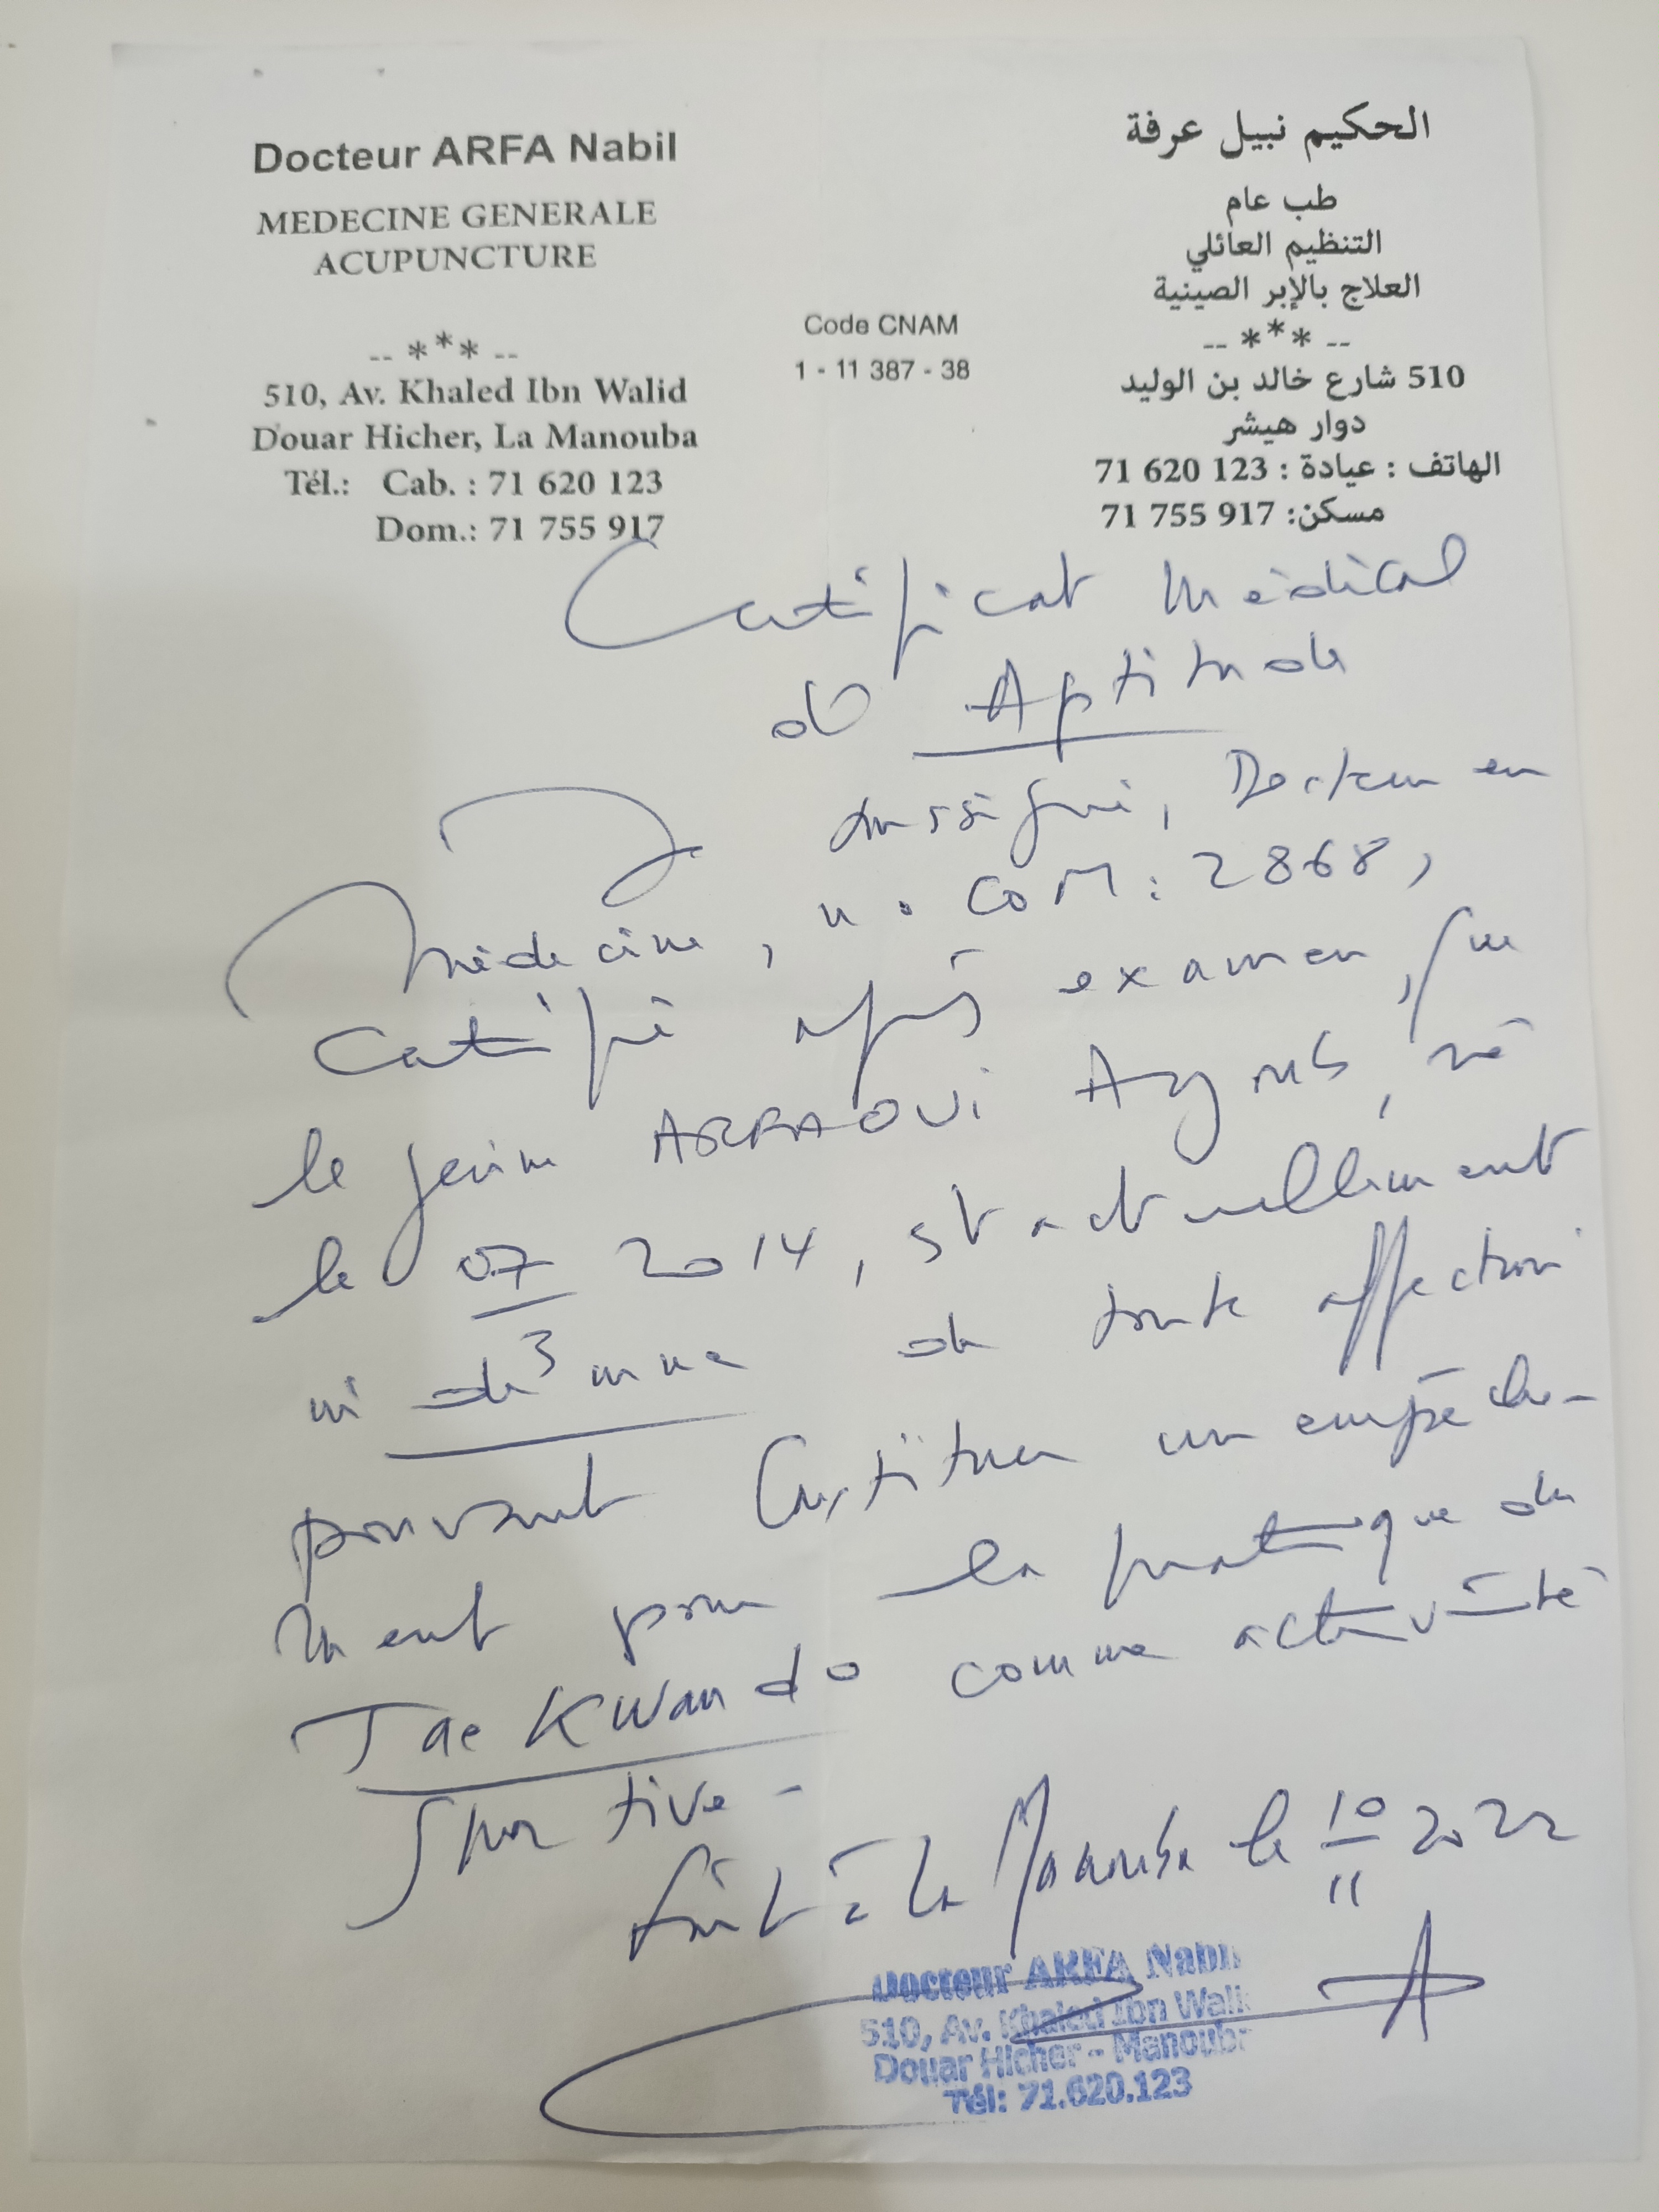 Docteur ARFA Nabil
MEDECINE GENERALE
ACUPUNCTURE
-- *** --
510, Av. Khaled Ibn Walid
Douar Hicher, La Manouba
Tél.: Cab. : 71 620 123
Dom.: 71 755 917
Code CNAM
1 - 11 387 - 38
الحكيم نبيل عرفة
طب عام
التنظيم العائلي
العلاج بالإبر الصينية
-- *** --
510 شارع خالد بن الوليد
دوار هيشر
الهاتف : عيادة : 123 620 71
مسكن: 917 755 71
Certificat Médical
d' Aptitude
Je soussigné, Docteur en
Médecine, n° COM : 2868,
Certifie après examen, que
le jeune Ayoub, né
le 07 2014, est actuellement
3
de toute affection
pouvant Constituer un empêche-
ment pour la pratique du
Tae Kwando comme activité
sportive -
Fait à la Manouba le 10 2022
11
Docteur ARFA Nabil
510, Av. Khaled Ibn Wali
Douar Hicher - Manouba
Tél: 71.620.123